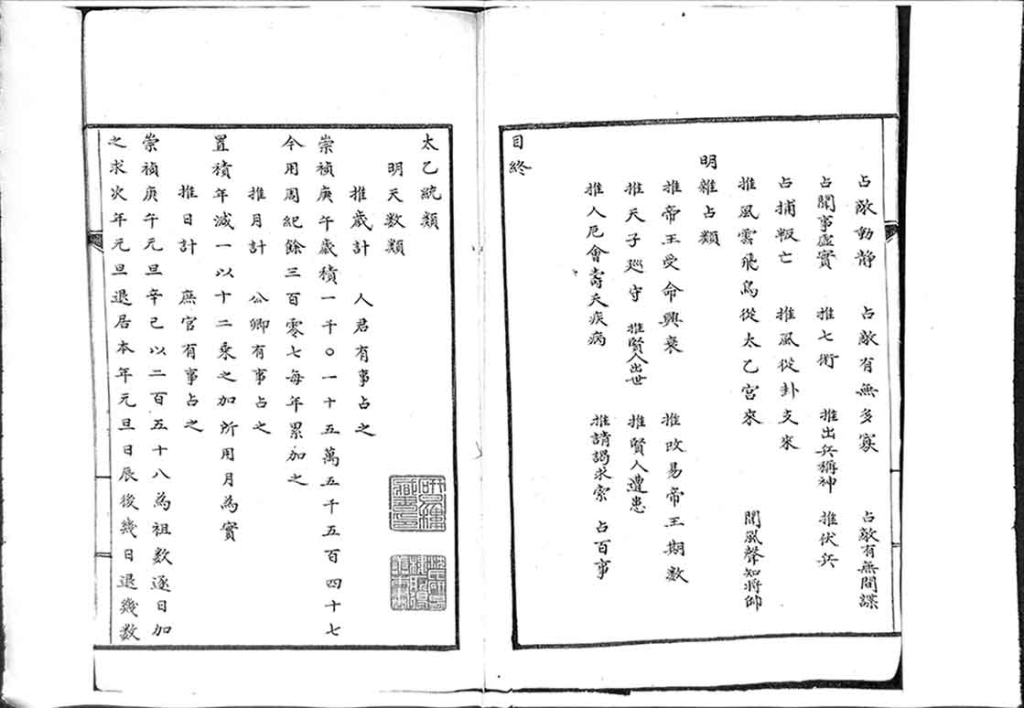 占敵動静　占敵有無多寡　占敵有無間諜
占聞事虛實　推七術　推出兵稱神　推伏兵
占捕叛亡　推風從卦支來
推風雲飛鳥從太乙宮來　聞風聲知將帥
明雜占類
推帝王受命興衰　推改易帝王期數
推天子廵守　推賢人出世　推賢人遭患
推人厄會壽夭疾病　推請謁求索　占百事
目終
太乙統類
明天数類
推歲計　人君有事占之
崇禎庚午歲積一千〇一十五萬五千五百四十七
今用周紀餘三百零七每年累加之
推月計　公卿有事占之
置積年減一以十二乘之加所用月為實
推日計　庶官有事占之
崇禎庚午元旦辛巳以二百五十八為祖数逐日加
之求次年元旦退居本年元旦日辰後幾日退幾数